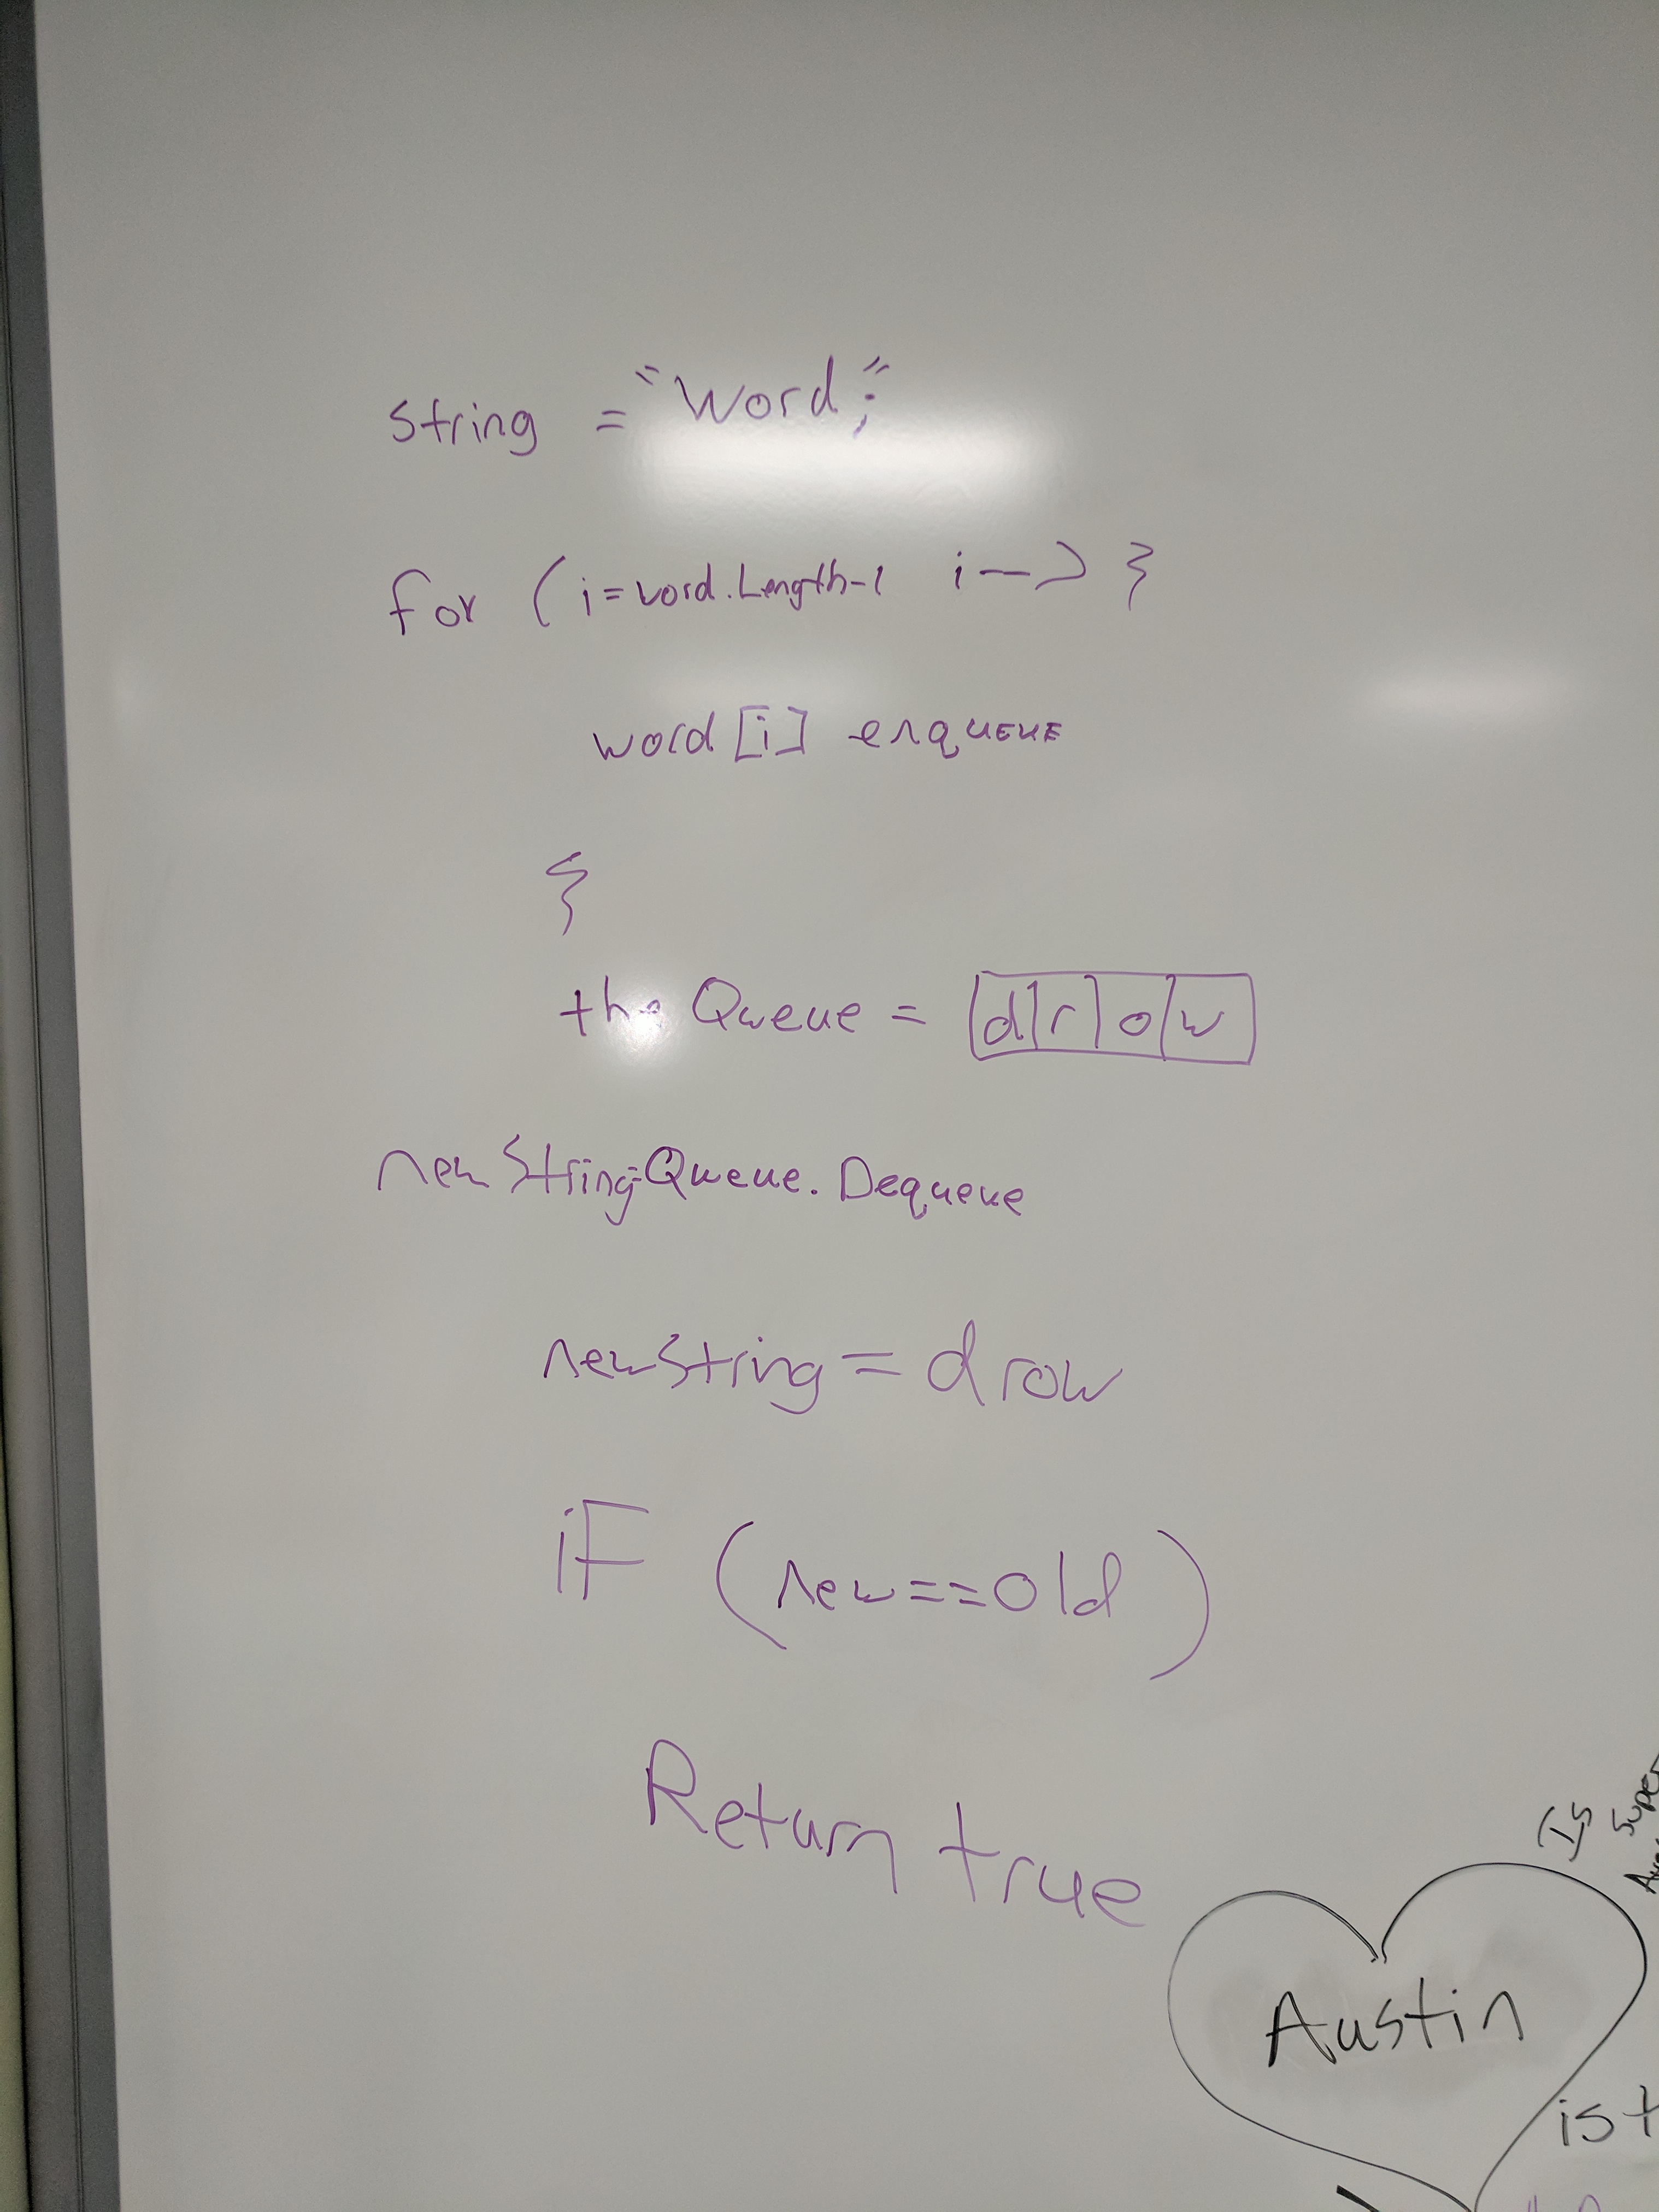 String = "Word;"
for (i=word.Length-1 i--) }
word[i] enqueue
{
the Queue = [d|r|o|w]
newString=Queue.Dequeue
newString = drow
iF (new==old)
Return true
Is
Super
Austin
is